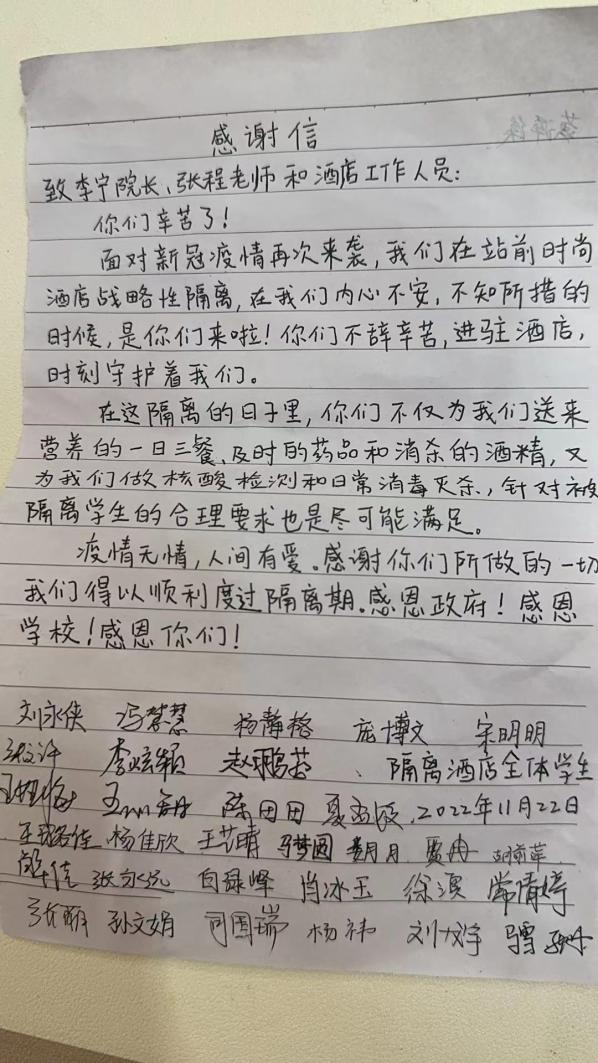 感谢信
致李宁院长、张程老师和酒店工作人员:
你们辛苦了!
面对新冠疫情再次来袭,我们在站前时尚
酒店战略性隔离,在我们内心不安,不知所措的
时候,是你们来啦!你们不辞辛苦,进驻酒店,
时刻守护着我们。
在这隔离的日子里,你们不仅为我们送来
营养的一日三餐、及时的药品和消杀的酒精,又
为我们做核酸检测和日常消毒灭杀,针对被
隔离学生的合理要求也是尽可能满足。
疫情无情,人间有爱。感谢你们所做的一切
我们得以顺利度过隔离期。感恩政府!感恩
学校!感恩你们!
刘永侠 冯慧慧 杨静格 庞博文 宋明明
李炫颖 赵鹏 、隔离酒店全体学生
陈田田 2022年11月22日
杨佳欣 王芷晴 马梦圆
白绿峰 肖冰玉 徐滨 常倩婷
孙文娟 司国瑞 杨祎